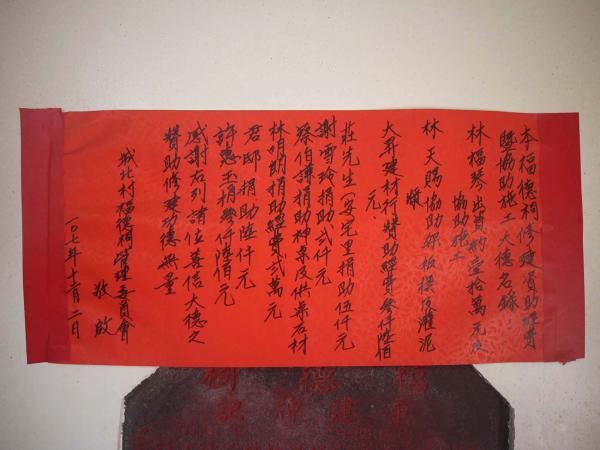 本福德祠修建資助經費
暨協助施工大德名錄：
林福琴出資約壹拾萬元及
協助施工
林天賜協助綁板模及灌泥
順
大昇建材行贊助經費參仟陸佰
元
莊先生(安宅里捐助伍仟元
謝雪玲捐助貳仟元
蔡伯謙捐助神桌及供桌石材
林明朗捐助經費貳萬元
君邸捐助陸仟元
許惠玉捐參仟陸佰元
感謝右列諸位善信大德之
贊助修建功德無量
城北村福德祠管理委員會
敬啟
一〇七年十二月二日
福德
重建碑